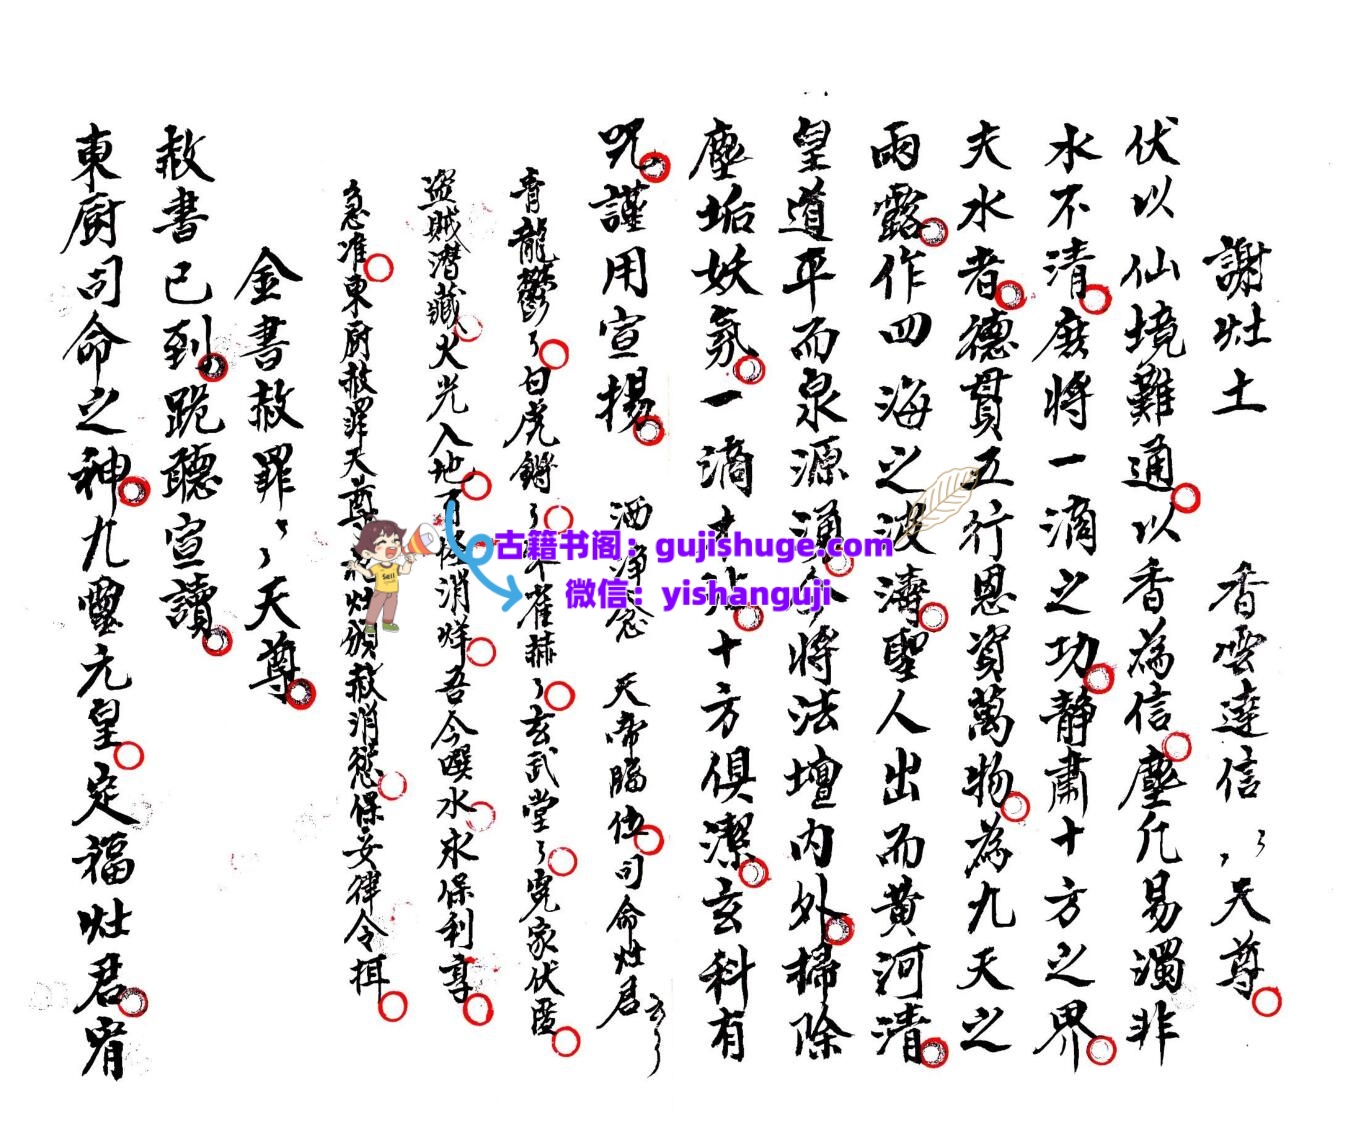 謝灶土　香雲達信〻天尊
伏以仙境難通以香為信塵凡易濁非
水不清庶將一滴之功静肅十方之界
夫水者德貫五行恩資萬物為九天之
雨露作四海之波濤聖人出而黄河清
皇道平而泉源涌今將法壇内外掃除
塵垢妖氛一滴才沾十方俱潔玄科有
咒謹用宣揚　洒净念　天帝腦伍司命灶君
青龍欝〻白虎鏘〻朱雀赫〻玄武堂〻寃家伏匿
盗賊潜藏火光入地百怪消烊吾今噀水永保利亨
急准東厨赦罪天尊頒赦消愆保安律令
金書赦罪〻天尊
赦書已到跪聽宣讀
東厨司命之神九靈元皇定福灶君宥
古籍书阁：gujishuge.com
微信：yishanguji
Sell